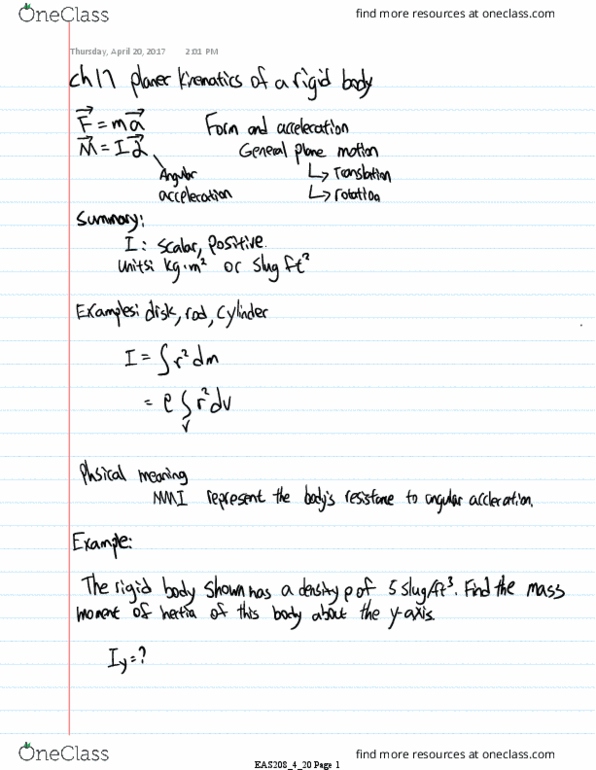 OneClass find more resources at oneclass.com
Thursday, April 20, 2017 2:01 PM
ch17 planer kinematics of a rigid body
F = ma Form and acceleration
M = Iα General plane motion
Angular ↳ Translation
acceleration ↳ rotation
Summary:
I: Scalar, positive.
units: kg·m² or slug ft²
Examples: disk, rod, cylinder
I = ∫r²dm
= ρ∫r²dv
V
Phsical meaning
MMI represent the body's resistane to angular accleration.
Example:
The rigid body shown has a density ρ of 5 slug/ft³. Find the mass
moment of hertia of this body about the y-axis.
Iy=?
OneClass find more resources at oneclass.com
EAS208_4_20 Page 1